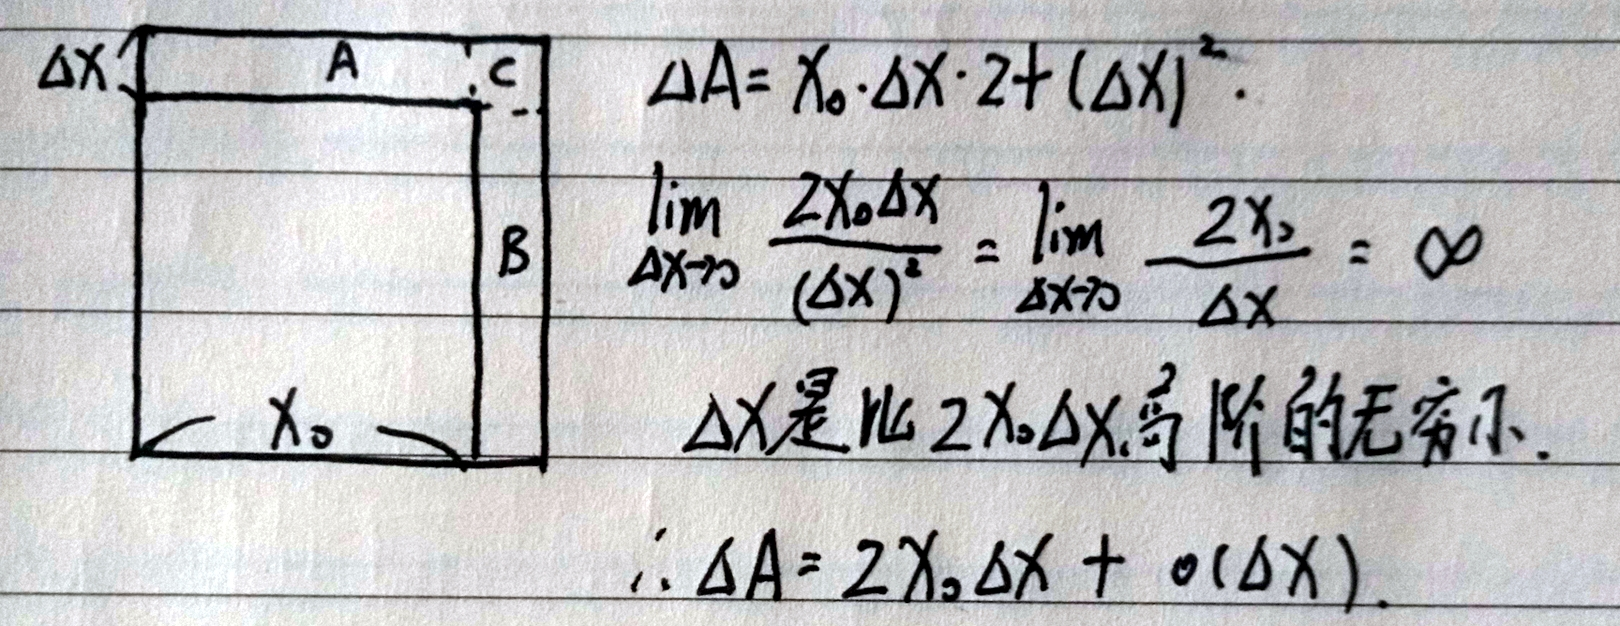 ΔX A C
B
X₀
ΔA = X₀·ΔX·2 + (ΔX)².
lim ΔX→0 2X₀ΔX/(ΔX)² = lim ΔX→0 2X₀/ΔX = ∞
ΔX是比2X₀ΔX²高阶的无穷小.
∴ ΔA = 2X₀ΔX + o(ΔX).